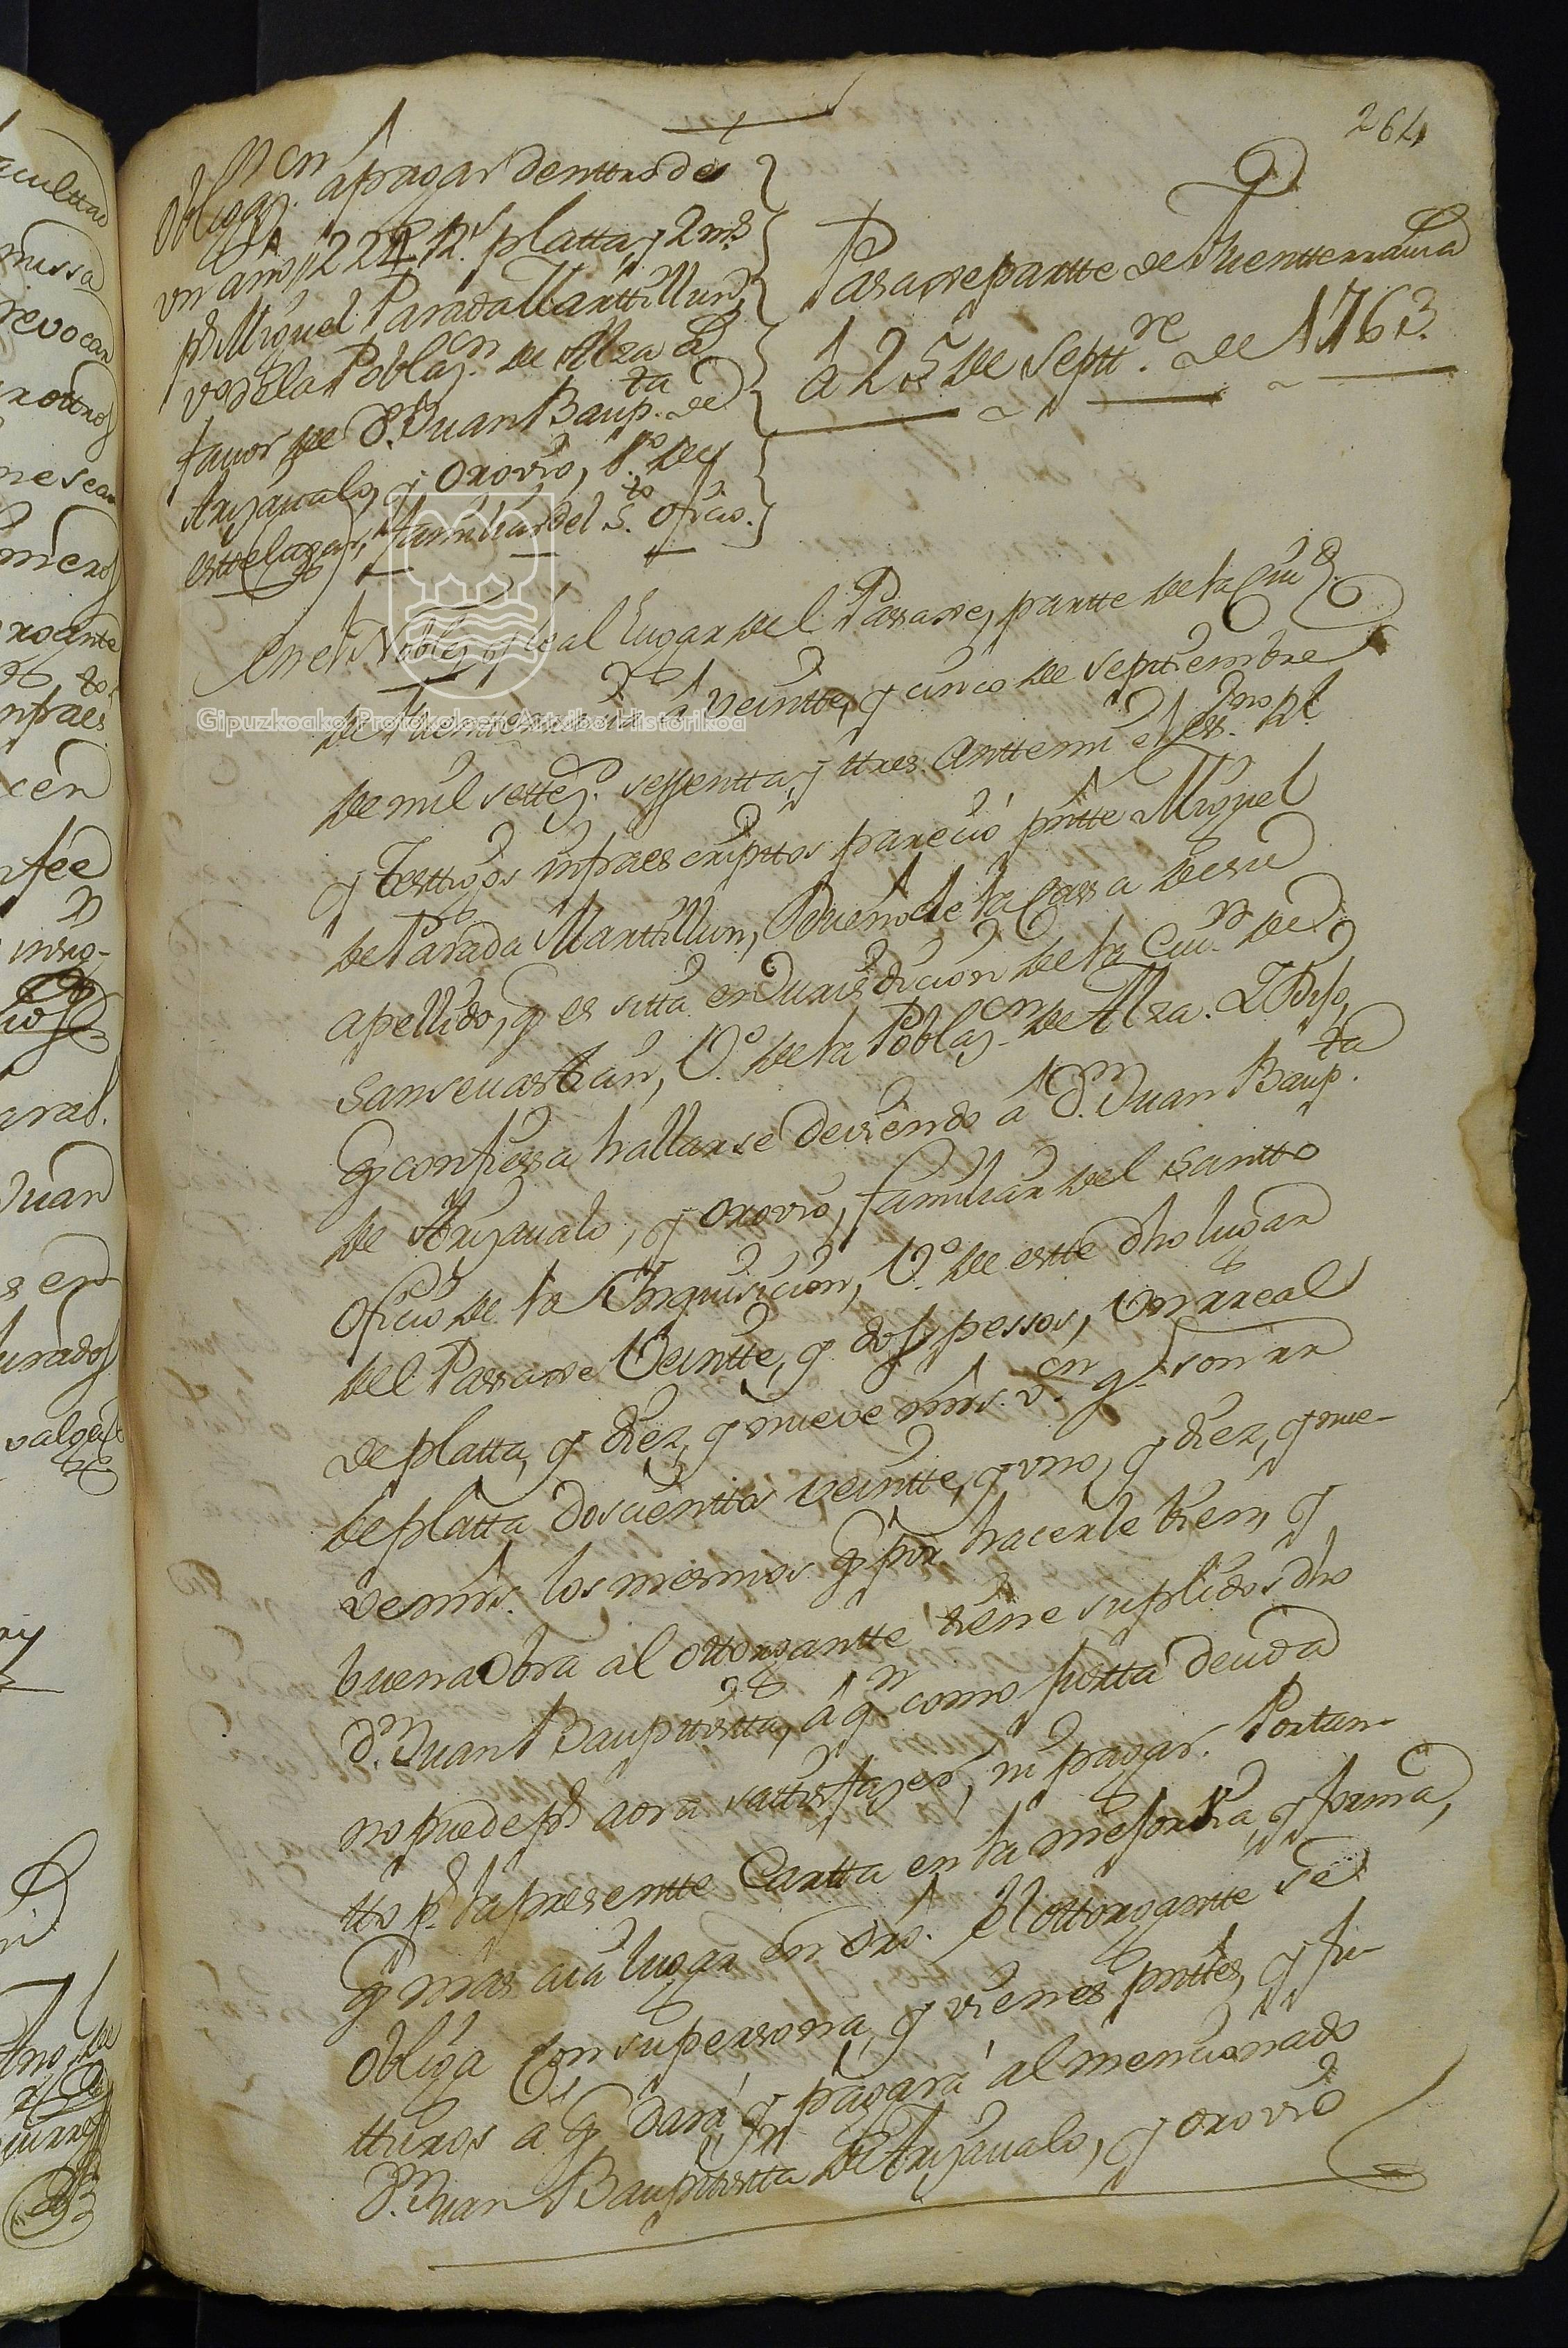 264
Obligaz.on â pagar denttro de
un año 221 R.s platta, y 2 m.s
p.r Miguel Parada Marttillun,
v.o de la Poblaz.on de Alza â
favor de D.n Juan Baup.ta de
Arizavalo, y Orovio, V.o de
estte lugar, familiar del S.to Oficio.
Passaxe partte de Fuentterravia
â 25 de Septt.re de 1763.
En el Noble, y Leal lugar del Passaxe, partte de la Ciu.d
de Fuentterravia â veintte, y cinco de Septtiembre
de mil settez.s sessentta, y ttres antte mi el ess.no R.l
y Testtigos infraescripttos pareció pntte Miguel
de Parada Marttillun, Dueño de la Cassa de su
apellido, q es sitta en Jurisdicion de la Ciu.d de
Sansevasttian, V.o de la Poblaz.on de Alza. Y Dijo,
q confiessa hallarse deviendo â D.n Juan Baup.ta
de Arizavalo, y Orovio, familiar del Santto
Oficio de la Inquisicion, V.o de estte dho lugar
del Passaxe Veintte, y dos pessos, un rreal
de platta, y diez, y nueve mrs. v.on q son rr.
de platta doscienttos veintte, y uno, y diez, y nue-
ve mrs. los mesmos q por hacerle bien, y
buena obra al ottorgantte tiene suplidos dho
D.n Juan Baupttistta, â q.n como justta deuda
no puede p.r aora sattisfazer, ni pagar. Portan-
tto p.r la presentte Cartta en la mejor via, y forma,
q mas aia lugar en dro. el ottorgantte se
obliga con su persona, y vienes pnttes, y fu-
tturos a q dará y pagará al mencionado
D.n Juan Baupttistta de Arizavalo, y Orovio
Gipuzkoako Protokoloen Artxibo Historikoa